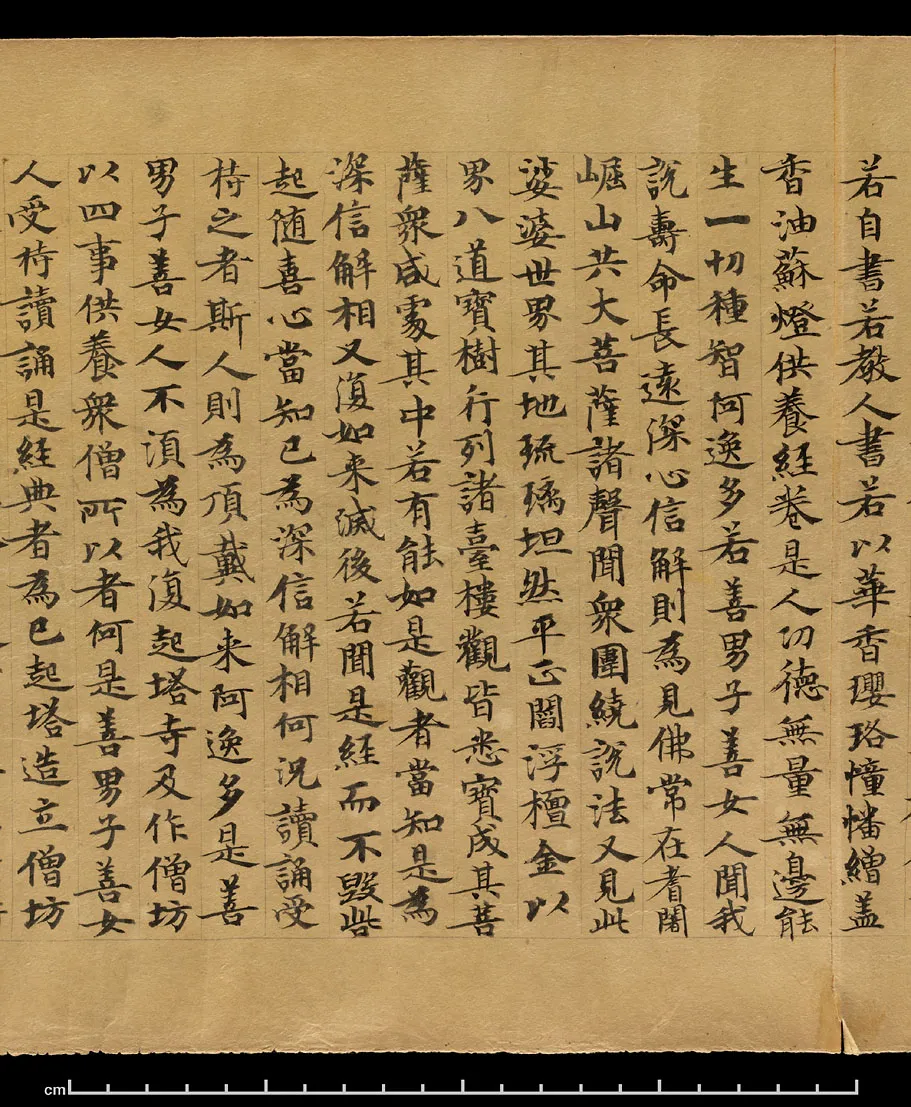 若自書若教人書若以華香瓔珞幢幡繒盖
香油蘇燈供養經卷是人功徳無量無邊能
生一切種智阿逸多若善男子善女人聞我
說壽命長遠深心信解則為見佛常在耆闍
崛山共大菩薩諸聲聞衆圍繞說法又見此
娑婆世界其地琉璃坦然平正閻浮檀金以
界八道寶樹行列諸臺樓觀皆悉寶成其菩
薩衆咸處其中若有能如是觀者當知是為
深信解相又復如来滅後若聞是經而不毀呰
起随喜心當知已為深信解相何況讀誦受
持之者斯人則為頂戴如来阿逸多是善
男子善女人不湏為我復起塔寺及作僧坊
以四事供養衆僧所以者何是善男子善女
人受持讀誦是經典者為已起塔造立僧坊
cm